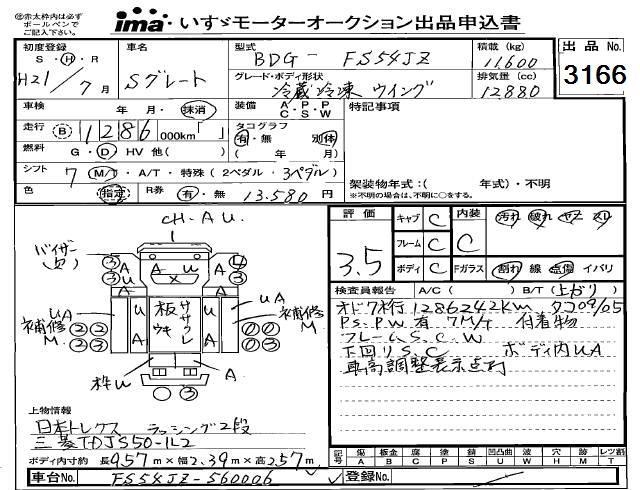 ㊟赤太枠内は必ず
ボールペンで
ご記入下さい。
ima いすゞモーターオークション出品申込書
初度登録 車名 型式 積載(kg) 出品No.
S・H・R Sグレート BDG- FS54JZ 11,600 3166
H21/7月
グレード・ボディ形状 排気量(cc)
冷蔵冷凍 ウイング 12880
車検 年・月・抹消 装備 A・P・P 特記事項
C・S・W
走行 B 1286 000km「 」 タコグラフ
有・無 別体
燃料 G・D・HV 他( ) ( 年 月)
シフト 7 M/T・A/T・特殊(2ペダル・3ペダル) 架装物年式:( 年式)・不明
色 指定 R券 有・無 13,580円 ※不明の場合は、不明に○をする。
CH. A U.
評価 3.5 キャブ C 内装 C 汚れ 破れ ヤケ スレ
フレーム C
ボディ C Fガラス 割れ 線 点傷 イバリ
バイザー
(欠)
③ A A U ④ A
③ A A ③ A
UA 補修 M. ② ② ② ③
U 板 ウキ ササクレ U
UA 補修 M ① ① ① ③
枠U A
③
検査員報告 A/C( ) B/T(上がり)
オドフ行 1286242km タコ09/05
PS.PW有 7M/T 付着物
フレームS.C.W
下回りS.C ボディ内UA
車高調整表示点灯
上物情報
日本トレクス ラッシング2段
三菱TDJS50-1L2
ボディ内寸約 長9.57m×幅2.39m×高2.57m
記号 傷A 板金B 腐C 塗P 錆S 凹凸曲U 波W 穴H 無M レンズ割T
車台No. FS54JZ-560006 登録No.